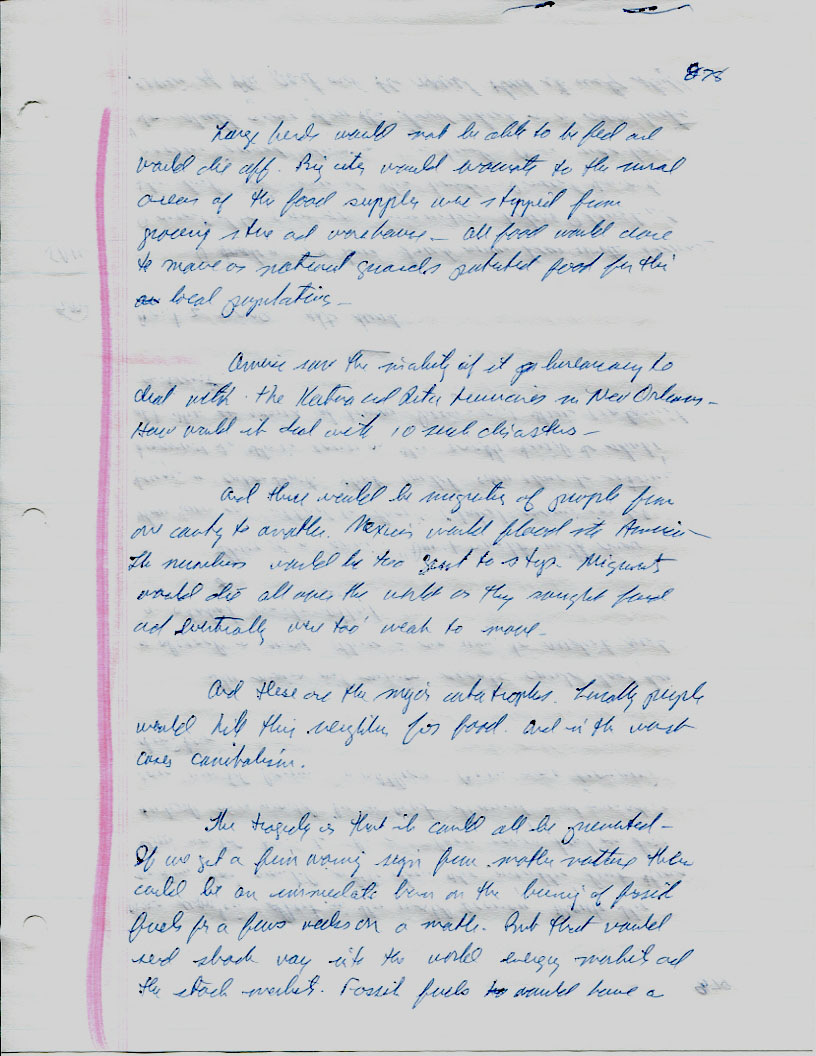 878
Large herds would not be able to be fed and
would die off. Big city would evacuate to the rural
areas of the food supply were stopped from
grocery store and warehouse – all food would cease
to move as national guards protected food for their
local populations –
America saw the inability of it bureaucracy to
deal with the Katrina and Rita hurricanes in New Orleans –
How would it deal with 10 such disasters –
And there would be migration of people from
one country to another. Mexicans would flood into America
The numbers would be too great to stop. Migrants
would die all over the world as they sought food
and eventually were too weak to move.
And these are the major catastrophes. Locally people
would kill their neighbor for food. and in the worst
cases canibalism.
The tragedy is that it could all be prevented –
If we get a firm warning sign from mother nature there
could be an immediate ban on the burning of fossil
fuels for a few weeks or a month. But that would
send shock way into the world energy markets and
the stock markets. Fossil fuels would have a